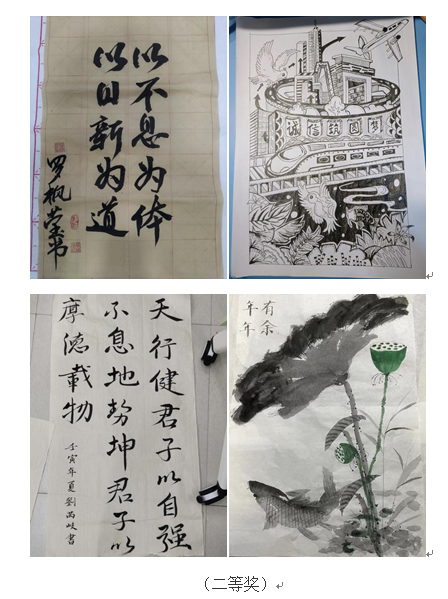 以不息为体
以日新为道
罗枫莹书
诚信筑圆梦
天行健君子以自强
不息地势坤君子以
厚德載物
壬寅年夏劉岐書
有余
年年
（二等奖）